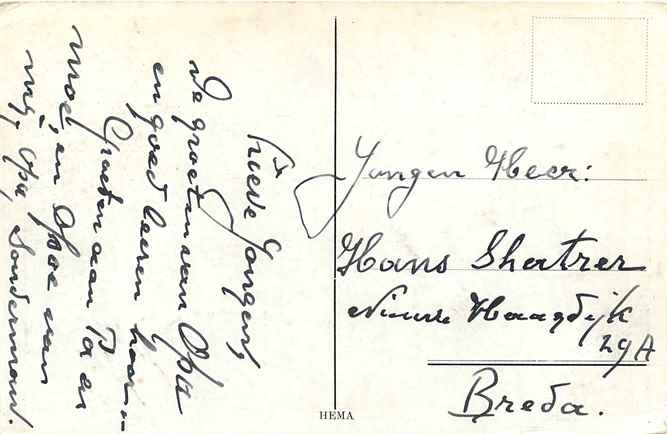 Lieve Jongens,
de groeten van Opa
en goed leeren hoor
Groeten aan Pa en
moe, en Opoe van
mij, Opa, Sondermans.
Jongen Heer:
Hans Shatrer
Nieuwe Haagdijk
29A
Breda.
HEMA